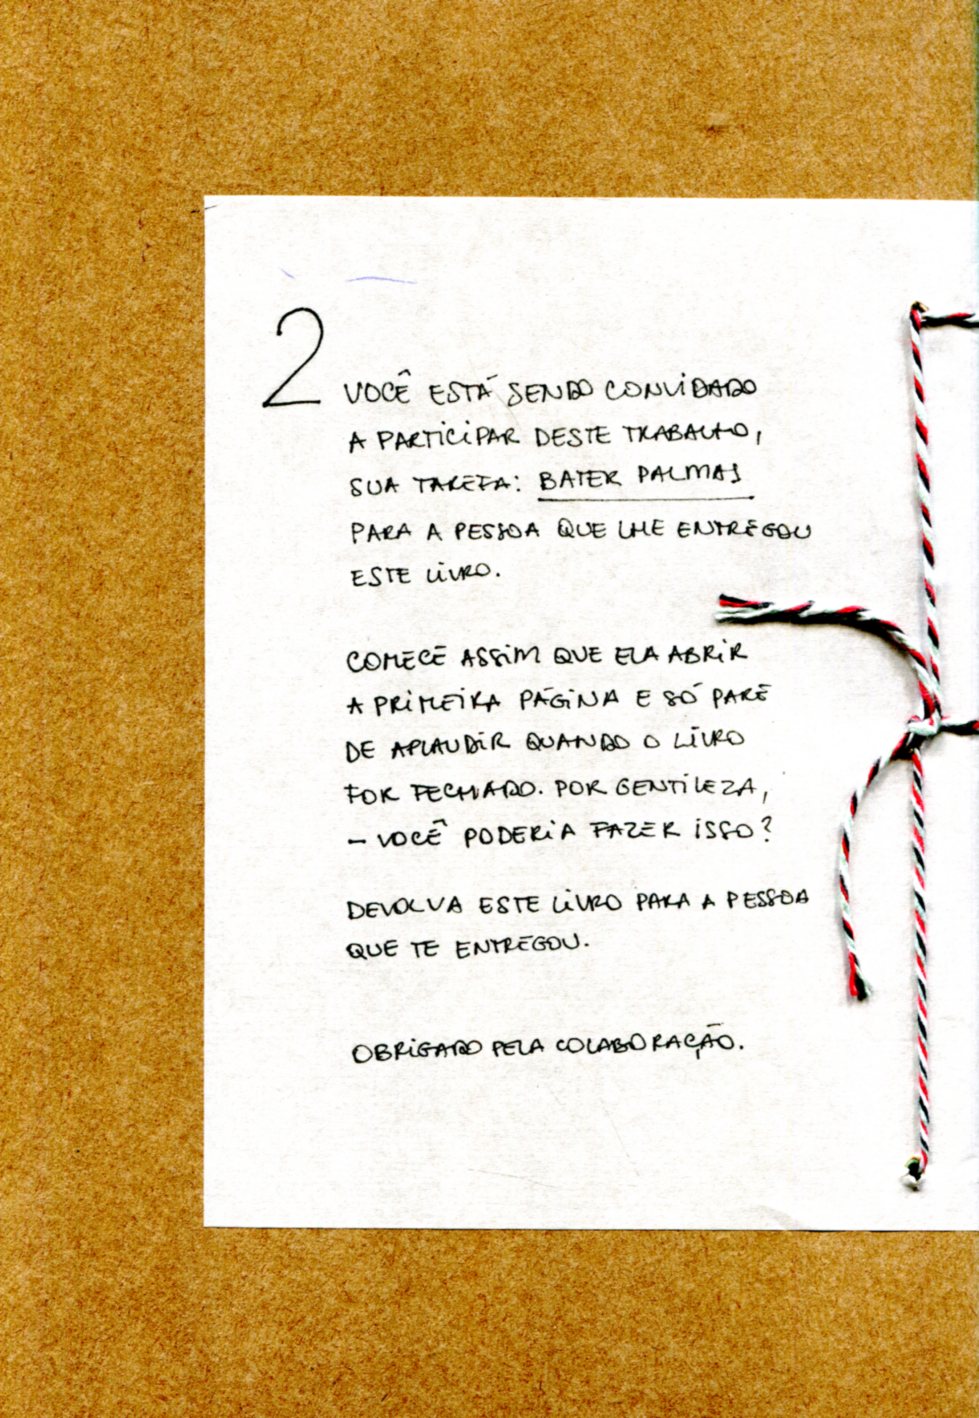 2
VOCÊ ESTÁ SENDO CONVIDADO
A PARTICIPAR DESTE TRABALHO,
SUA TAREFA: BATER PALMAS
PARA A PESSOA QUE LHE ENTREGOU
ESTE LIVRO.
COMECE ASSIM QUE ELA ABRIR
A PRIMEIRA PÁGINA E SÓ PARE
DE APLAUDIR QUANDO O LIVRO
FOR FECHADO. POR GENTILEZA,
– VOCÊ PODERIA FAZER ISSO?
DEVOLVA ESTE LIVRO PARA A PESSOA
QUE TE ENTREGOU.
OBRIGADO PELA COLABORAÇÃO.